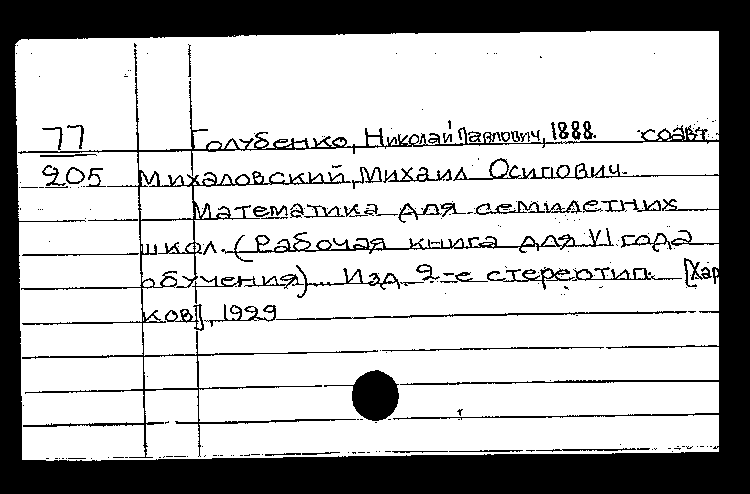 77 Голубенко, Николай Павлович, 1888. соавт.
205 Михаловский, Михаил Осипович.
Математика для семилетних
школ. (Рабочая книга для VI года
обучения)... Изд. 2-е стереотип. [Харь
ков], 1929